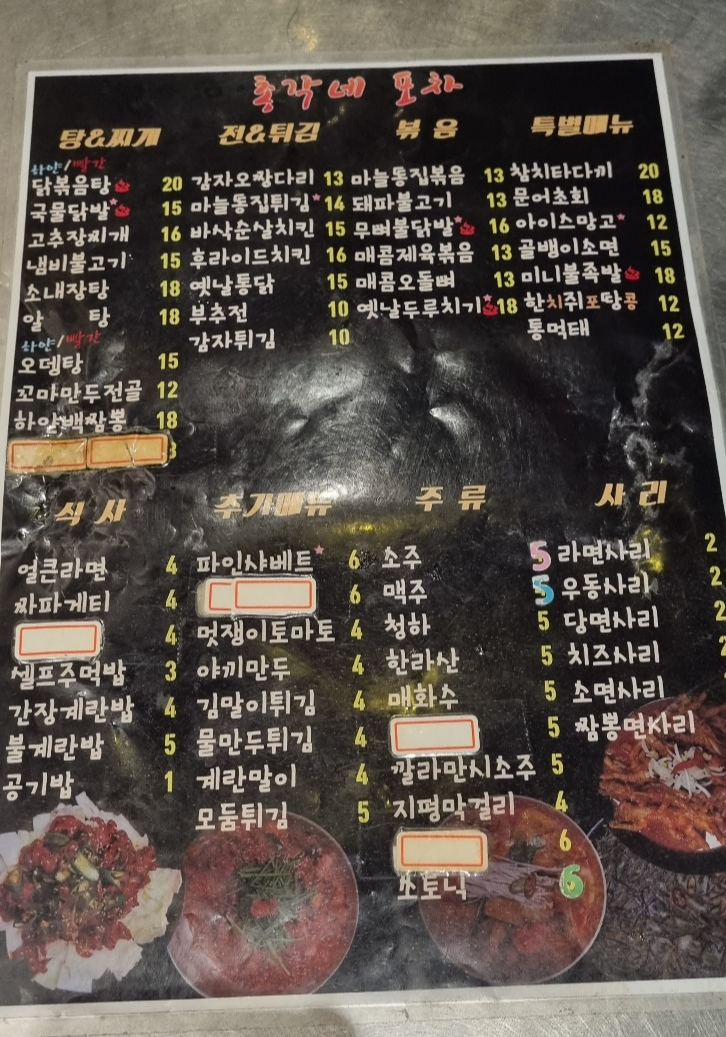 총각네 포차
탕&찌개
하얀/빨간
닭볶음탕 20
국물닭발 15
고추장찌개 16
냄비불고기 15
소내장탕 18
알 탕 18
하얀/빨간
오뎅탕 15
꼬마만두전골 12
하얀백짬뽕 18
전&튀김
감자오짱다리 13
마늘똥집튀김* 14
바삭순살치킨 15
후라이드치킨 16
옛날통닭 15
부추전 10
감자튀김 10
볶음
마늘똥집볶음 13
돼파불고기 13
무뼈불닭발 16
매콤제육볶음 13
매콤오돌뼈 13
옛날두루치기 18
특별메뉴
참치타다끼 20
문어초회 18
아이스망고* 12
골뱅이소면 15
미니불족발 18
한치쥐포땅콩 12
통먹태 12
식사
얼큰라면 4
짜파게티 4
4
셀프주먹밥 3
간장계란밥 4
불계란밥 5
공기밥 1
추가메뉴
파인샤베트* 6
6
멋쟁이토마토 4
야끼만두 4
김말이튀김 4
물만두튀김 4
계란말이 4
모둠튀김 5
주류
소주 5
맥주 5
청하 5
한라산 5
매화수 5
5
깔라만시소주 5
지평막걸리 4
6
쏘토닉 6
사리
라면사리 2
우동사리 2
당면사리 2
치즈사리 2
소면사리
짬뽕면사리